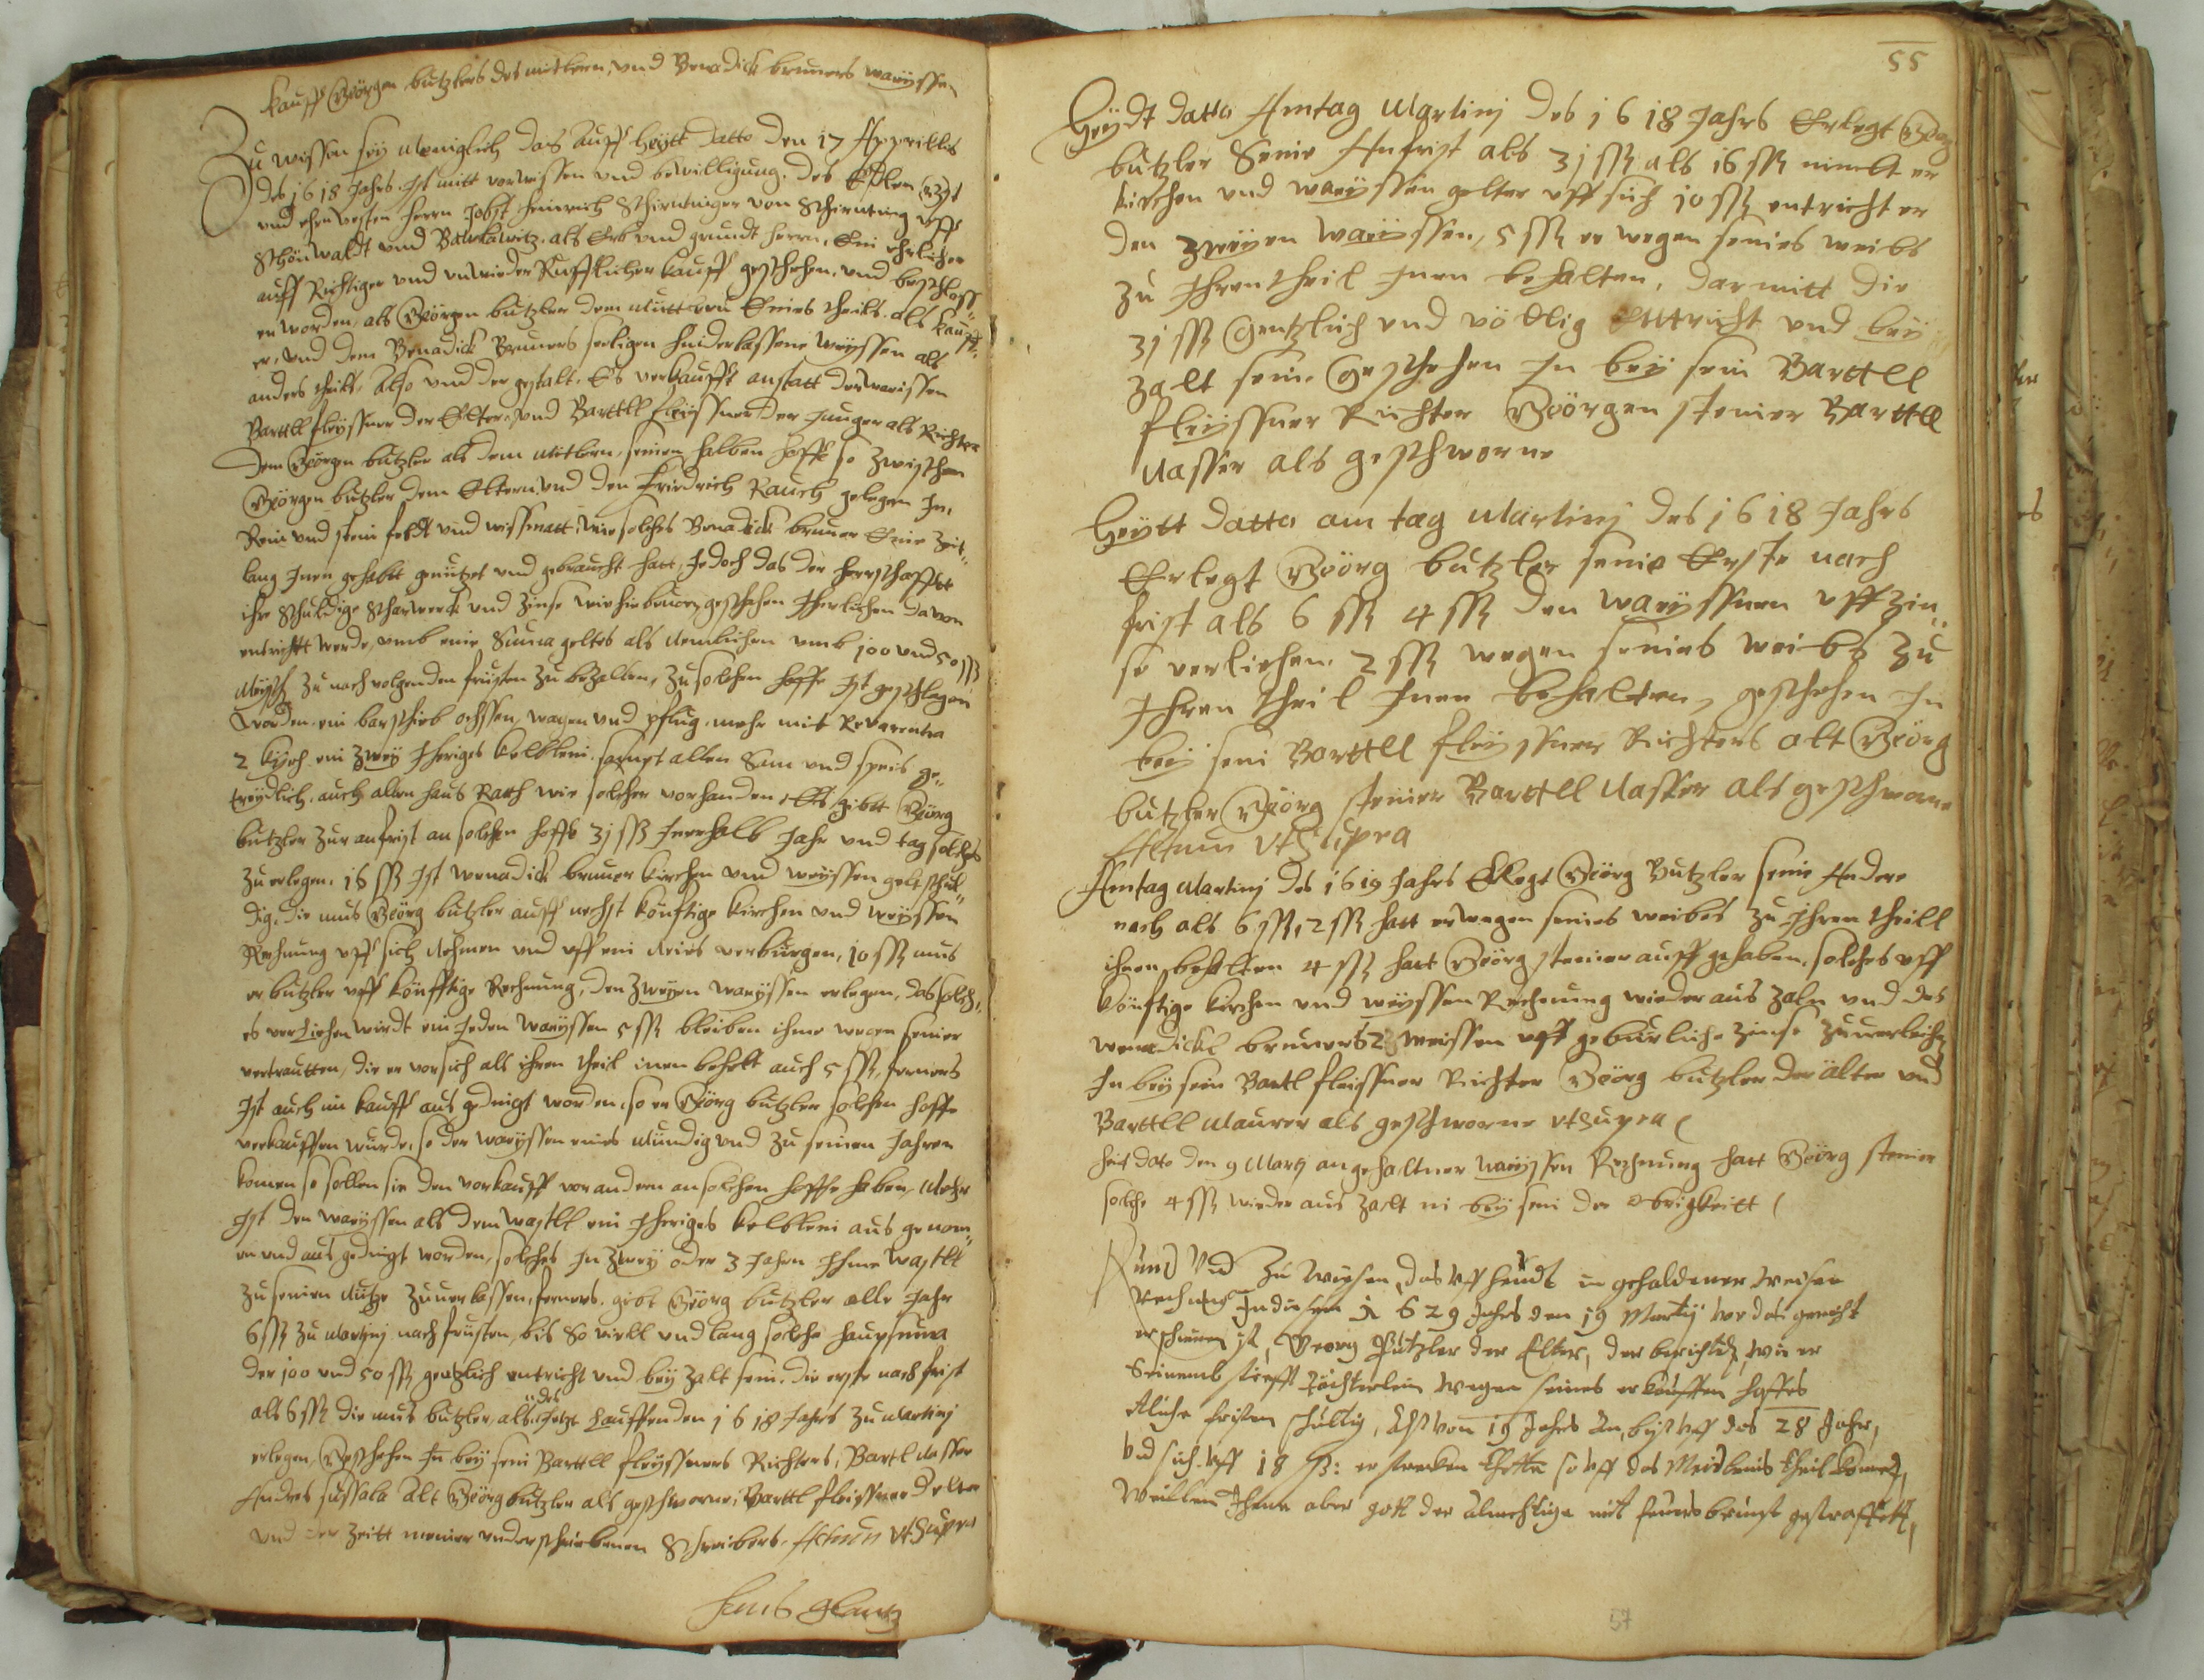 Kauff Geörgen butzlers des mitlern, und Benadick bruners waÿssen
Zu wissen seÿ Meniglich das auff heÿtt datto den 17 Apprillis
des 1618 Jahrs. Ist mitt vorwissen und bewilligung. des Edlen
und ehrnvesten Herrn Jobst Heinrich Schirntinger von Schirnting uff
Schönwaldt und als Erb und grundt herrn, Ein ehrlicher
auff Richtiger und unwiederRufflicher kauff geschehen, und beschloss=
en worden, als Geörgen butzler dem Mittern Eines theils. als kauff=
er, und dem Benadick Bruners seeligen hinderlassene weÿssen als
anders theils, Also und der gestalt. Es verkaufft anstatt der waissen
Barttll fleÿssner der Elter, und Barttll fleÿssner der Junger als Richter
dem Geörgen butzler als dem Mitlern, seinen halben hoff so zwischen
Geörgen butzler dem Eltern und den Friedrich Rauch gelegen In,
Rein und stein feldt und wissmatt, wie solches Benadick bruner Eine Zeit=
lang Inen gehabt genützet und gebraucht hatt, Jedoch das der Herrschafft
ihr schuldige scharwerck und Zinse wie hiebevor geschehen Jherlichen davon
entricht werde, umb eine Suma geltes als Nemlichen umb 100 und 50 ßß
zu nach volgenden fristen zu bezallen, zu solchen hoffe Ist geschlagen
worden. ein barschieb ochssen, wagen und pflug, mehr mit Reverentia
2 kÿeh ein zweÿ Jheriges kelblein, sampt allen Sam und speis ge=
treÿdlich, auch allen haus Rath wie solcher vorhanden. Es gibtt Geörg
butzler zur anfrist an solchen hoffe 31 ßß Inerhalb Jahr und tag solches
zu erlegen. 16 ßß Ist Wenadick bruner kirchen und weÿssen gelt schul=
dig, die mus Geörg butzler auff nechst künftige kirchen und weÿssen
Rechnung uff sich Nehmen und uff ein Neues verbürgen, 10 ßß mus
er butzler uff künfftige Rechnung, den zweÿen waÿssen erlegen, das solch=
es verliehen wirdt ein Jeden waÿssen 5 ßß bleiben ihme wegen seiner
vertrautten, die er vor sich als ihren theil inen behelt auch 5 ßß, ferners
Ist auch im kauff aus gedingt worden, so er Geörg butzler solchen hoffe
verkauffen würde, so der waÿssen eines Mündig und zu seinen Jahren
komen so sollen sie den vorkauff vor andern an solchen hoffe haben, Mehr
Ist den waÿssen als dem Wastll ein Jheriges kelblein aus genom=
en und aus gedingt worden, solches in zweÿ oder 3 Jahrn Ihme Wastll
zu seinen Nutze zuuerlassen, ferners. gibt Geörg butzler alle Jahr
6 ßß zu Martinj nach fristen, bis So viell und lang solche hauptsuma
der 100 und 50 ßß gentzlich entricht und beÿ zalt sein. die erste nach frist
als 6 ßß die mus butzler, als des Jetzt lauffenden 1618 Jahrs zu Martinj
erlegen, Geschehen In beÿ sein Barttll fleÿssners Richters, Bartl Nasser
Andres Alt Geörg butzler als geschworne, Barttl fleissner d elter
und der Zeitt meiner underschriebenen Schreibers. Actum ut Supra
Hans Glantz
55
Heÿdt datto Amtag Martinj des 1618 Jahrs Erlegt Geörg
butzler Seine Anfrist als 31 ßß als 16 ßß nimbt er
kirchen und waÿssen gelter uff sich 10 ßß entricht er
den zweÿen waÿssen, 5 ßß er wegen seines weibs
zu Ihren theil Inen behalten, darmitt die
31 ßß Gentzlich und völlig Entricht und beÿ
zalt sein. Geschehen In beÿ sein Barttll
fleÿssner Richter Geörgen steiner Barttll
Nasser als geschworne
Heÿtt datto am tag Martinj des 1618 Jahrs
Erlegt Geörg butzler seine Erste nach
frist als 6 ßß 4 ßß den waÿssnen uff Zin=
se verliehen. 2 ßß wegen seines weibs zu
Ihren theil Inen behalten, geschehen In
beÿ sein Barttll fleÿssner Richters alt Geörg
butzler Geörg steiner Barttll Nasser als geschworne
Actum ut Supra
Amtag Martinj des 1619 Jahrs Erlegt Geörg Butzler seine Andere
nach als 6 ßß, 2 ßß hatt er wegen seines weibes zu Ihren theill
ihnen behalten 4 ßß hatt Geörg steiner auff gehaben, solches uff
künftige kirchen und weÿssen Rechnung wieder aus zaln und des
wenadickl bruners 2 weissen uff gebürliche Zinse zuuerleihen
In beÿ sein Bartl fleissner Richter Geörg butzler der älter und
Barttll Maurer als geschworne ut Supra
heit dato den 9 Martj an gehaltner waÿssen Rechnung hatt Geörg steiner
solche 4 ßß wieder aus zalt in beÿ sein der obrigkeitt
Kund Und zu wiessen, das uff heudt in gehaldener weisen
Rechnung In diesem 1629 Jahrs den 19 Martij vor das gericht
erschienen ist, Georg Putzler der Elter, der berichtet, wie er
Seinem stieff Töchterlein wegen seines erkaufften hoffes
Etliche fristen schuldig, Als von 19 Jahrs an, bist uff das 28 Jahr,
und sich uff 18 ß: erstrecken thette so uff des Meidleins theil komet,
Weillen Ihme aber gott der Almechtige mit feuersbrunst gestraffett,
57